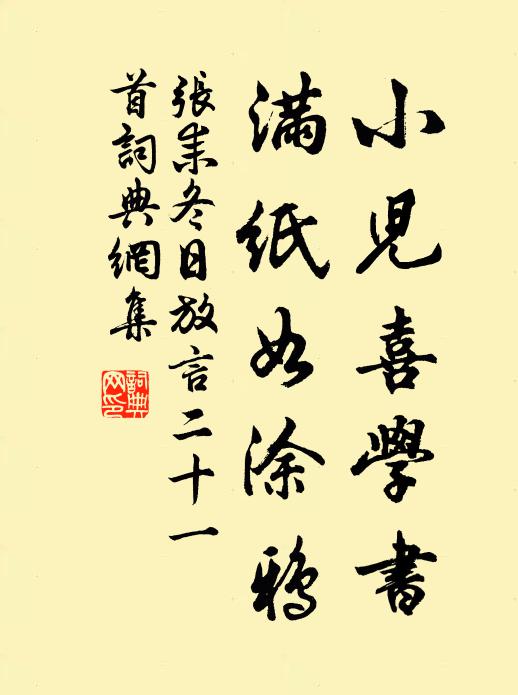 小兒喜學書
滿紙如涂鴉
張耒冬日放言二十一
首詞典網集
詞典
网印